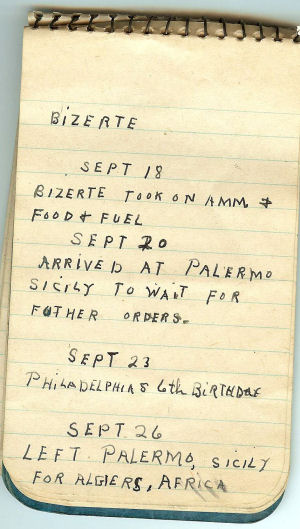 BIZERTE
SEPT 18
BIZERTE TOOK ON AMM. &
FOOD & FUEL
SEPT 20
ARRIVED AT PALERMO
SICILY TO WAIT FOR
FUTHER ORDERS.
SEPT 23
PHILADELPHIA'S 6th BIRTHDAY
SEPT. 26
LEFT PALERMO, SICILY
FOR ALGIERS, AFRICA